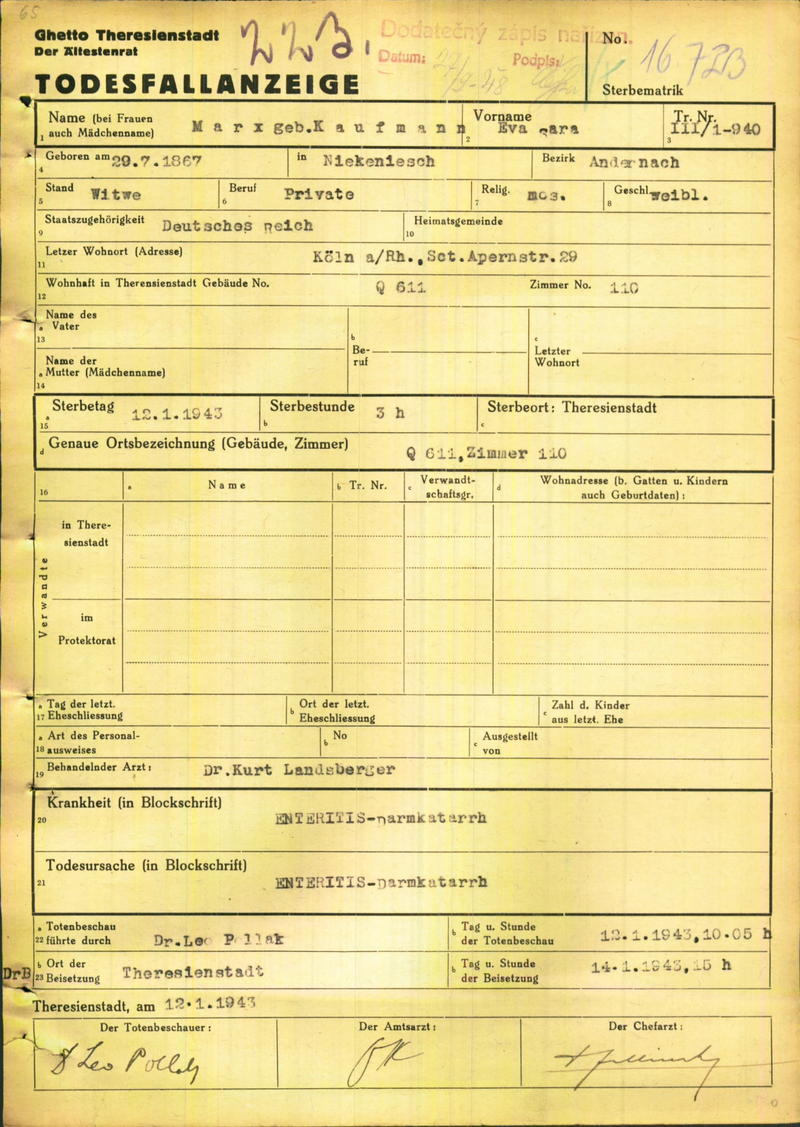 65
Ghetto Theresienstadt
Der Ältestenrat
TODESFALLANZEIGE
223.
Dodatečný zápis nařízen.
Datum:
Podpis:
No. 16723
Sterbematrik
Name (bei Frauen auch Mädchenname) Marx geb.Kaufmann
Vorname Eva Sara
Tr. Nr. III/1-940
1 2 3
Geboren am 29.7.1867 in Niekeniesch Bezirk Andernach
4
Stand Witwe Beruf Private Relig. mos. Geschl. weibl.
5 6 7 8
Staatszugehörigkeit Deutsches Reich Heimatsgemeinde
9 10
Letzer Wohnort (Adresse) Köln a/Rh.,Sct.Apernstr.29
11
Wohnhaft in Therensienstadt Gebäude No. Q 611 Zimmer No. 110
12
Name des
a Vater
13
Name der
a Mutter (Mädchenname)
14
b
Be-
ruf
c
Letzter
Wohnort
Sterbetag 12.1.1943 Sterbestunde 3 h Sterbeort: Theresienstadt
a 15 b c
d Genaue Ortsbezeichnung (Gebäude, Zimmer) Q 611,Zimmer 110
16 a Name b Tr. Nr. c Verwandt-schaftsgr. d Wohnadresse (b. Gatten u. Kindern auch Geburtdaten) :
Verwandte
in There-
sienstadt
im
Protektorat
a Tag der letzt. b Ort der letzt. c Zahl d. Kinder
17 Eheschliessung Eheschliessung aus letzt. Ehe
a Art des Personal- b No c Ausgestellt
18 ausweises von
19 Behandelnder Arzt: Dr.Kurt Landsberger
Krankheit (in Blockschrift)
20 ENTERITIS-Darmkatarrh
Todesursache (in Blockschrift)
21 ENTERITIS-Darmkatarrh
a Totenbeschau b Tag u. Stunde
22 führte durch Dr.Leo Pollak der Totenbeschau 12.1.1943,10.05 h
DrB
b Ort der b Tag u. Stunde
23 Beisetzung Theresienstadt der Beisetzung 14.1.1943,15 h
Theresienstadt, am 12.1.1943
Der Totenbeschauer: Der Amtsarzt: Der Chefarzt:
Dr Leo Pollak